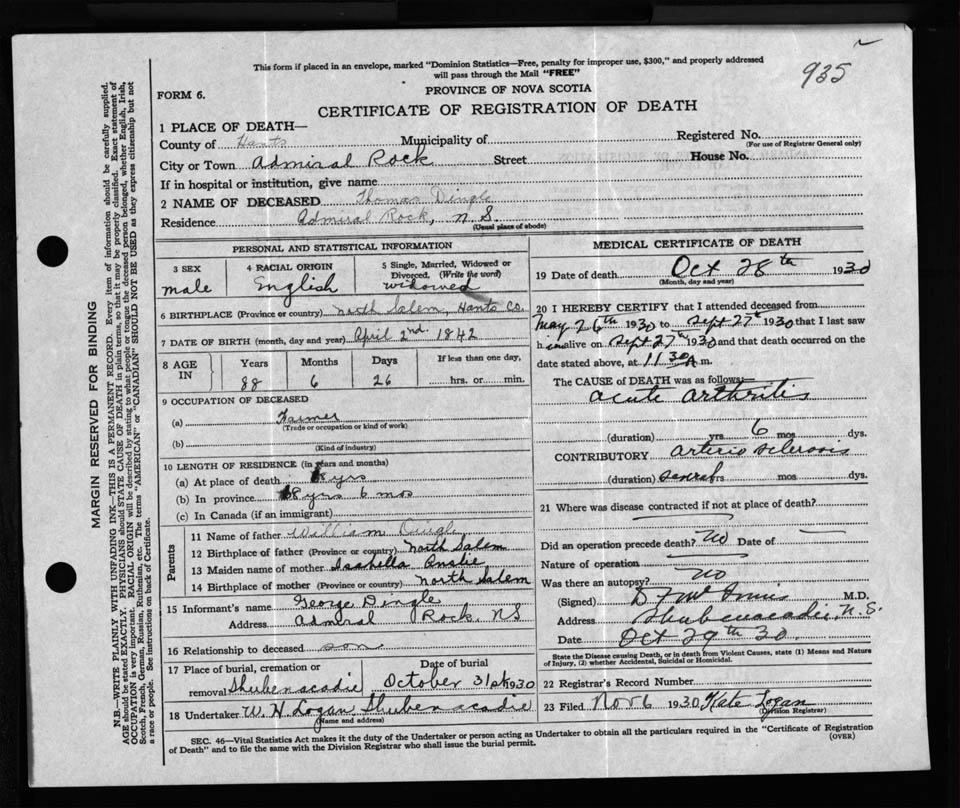 935
This form if placed in an envelope, marked "Dominion Statistics—Free, penalty for improper use, $300," and properly addressed
will pass through the Mail "FREE"
FORM 6.
PROVINCE OF NOVA SCOTIA
CERTIFICATE OF REGISTRATION OF DEATH
1 PLACE OF DEATH—
County of Hants Municipality of Registered No.
(For use of Registrar General only)
City or Town Admiral Rock Street House No.
If in hospital or institution, give name
2 NAME OF DECEASED Thomas Dingle
Residence Admiral Rock, N.S.
(Usual place of abode)
PERSONAL AND STATISTICAL INFORMATION
3 SEX
male
4 RACIAL ORIGIN
English
5 Single, Married, Widowed or
Divorced. (Write the word)
widowed
6 BIRTHPLACE (Province or country) North Salem, Hants Co.
7 DATE OF BIRTH (month, day and year) April 2nd 1842
8 AGE
IN
Years Months Days If less than one day,
88 6 26 hrs. or min.
9 OCCUPATION OF DECEASED
(a) Farmer
(Trade or occupation or kind of work)
(b)
(Kind of industry)
10 LENGTH OF RESIDENCE (in years and months)
(a) At place of death yrs
(b) In province yrs 6 mos
(c) In Canada (if an immigrant)
Parents
11 Name of father William Dingle
12 Birthplace of father (Province or country) North Salem
13 Maiden name of mother Isabella
14 Birthplace of mother (Province or country) North Salem
15 Informant's name George Dingle
Address Admiral Rock. NS
16 Relationship to deceased son
17 Place of burial, cremation or Date of burial
removal Shubenacadie October 31st 1930
18 Undertaker W. H. Logan Shubenacadie
(Name and address)
MEDICAL CERTIFICATE OF DEATH
19 Date of death Oct 28th 1930
(Month, day and year)
20 I HEREBY CERTIFY that I attended deceased from
May 26th 1930 to Sept 27th 1930 that I last saw
him alive on Sept 27th 1930 and that death occurred on the
date stated above, at 11 30 A m.
The CAUSE of DEATH was as follows:
acute arthritis
(duration) yrs 6 mos dys.
CONTRIBUTORY arterio sclerosis
(duration) several yrs mos dys.
21 Where was disease contracted if not at place of death?
Did an operation precede death? NO Date of
Nature of operation
Was there an autopsy? NO
(Signed) M.D.
Address Shubenacadie, N.S.
Date Oct 29th 30.
State the Disease causing Death, or in death from Violent Causes, state (1) Means and Nature
of Injury, (2) whether Accidental, Suicidal or Homicidal.
22 Registrar's Record Number
23 Filed Nov 6 1930 Kate Logan
(Division Registrar)
SEC. 46—Vital Statistics Act makes it the duty of the Undertaker or person acting as Undertaker to obtain all the particulars required in the "Certificate of Registration
of Death" and to file the same with the Division Registrar who shall issue the burial permit. (OVER)
MARGIN RESERVED FOR BINDING
N.B.—WRITE PLAINLY, WITH UNFADING INK—THIS IS A PERMANENT RECORD. Every item of information should be carefully supplied.
AGE should be stated EXACTLY. PHYSICIANS should STATE CAUSE OF DEATH in plain terms, so that it may be properly classified. Exact statement of
OCCUPATION is very important. RACIAL ORIGIN will be described by stating to what people or tongue the deceased person belonged, whether English, Irish,
Scotch, French, German, Russian, Ruthenian, etc. The terms "AMERICAN" or "CANADIAN" SHOULD NOT BE USED as they express citizenship but not
a race or people. See instructions on back of Certificate.